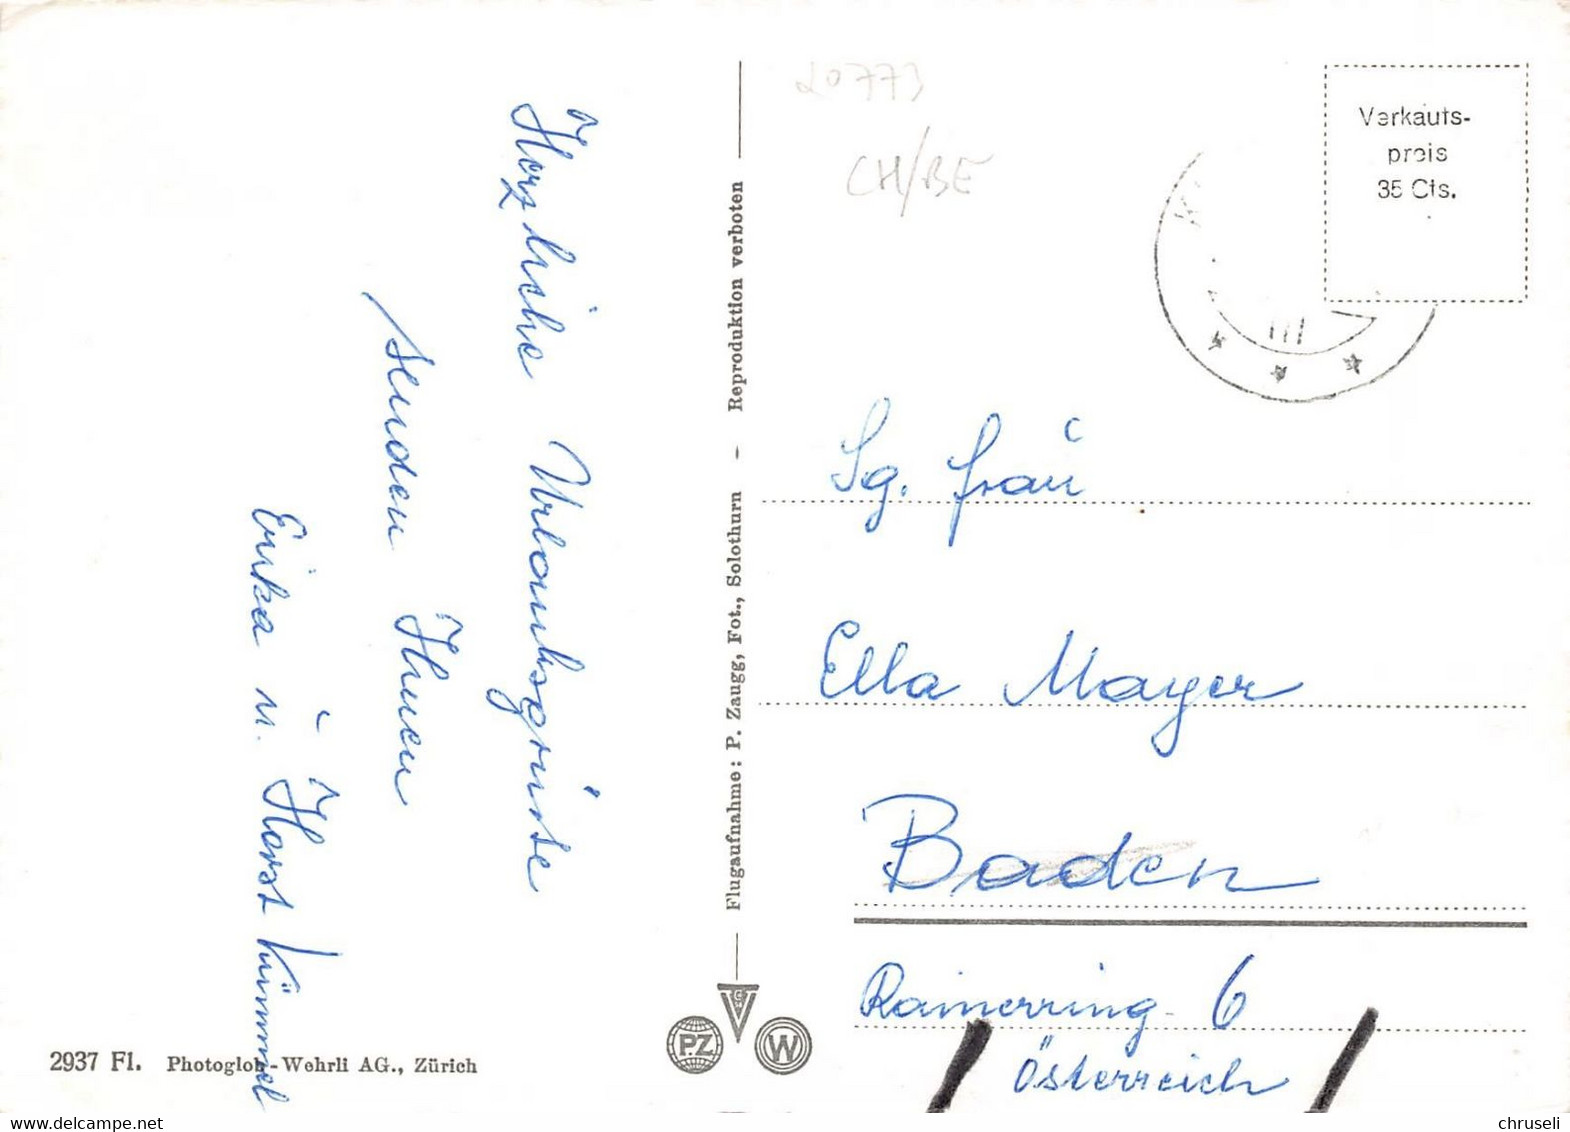 Herzliche Urlaubsgrüße
senden Ihnen
Erika u. Horst Kümmel
2937 Fl. Photoglob-Wehrli AG., Zürich
Flugaufnahme: P. Zaugg, Fot., Solothurn - Reproduktion verboten
PZ
W
20773
CH/BE
Verkaufs-
preis
35 Cts.
Sg. Frau
Ella Mayer
Baden
Rainerring 6
Österreich
www.delcampe.net
chruseli